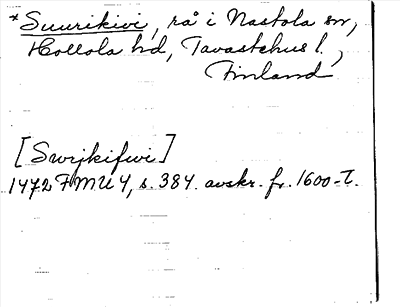 *Suurikivi, rå i Nastola sn,
Hollola hd, Tavastehus l.,
Finland
[Swrjkifwi]
1472 FMU 4, s. 384. avskr. fr. 1600-t.